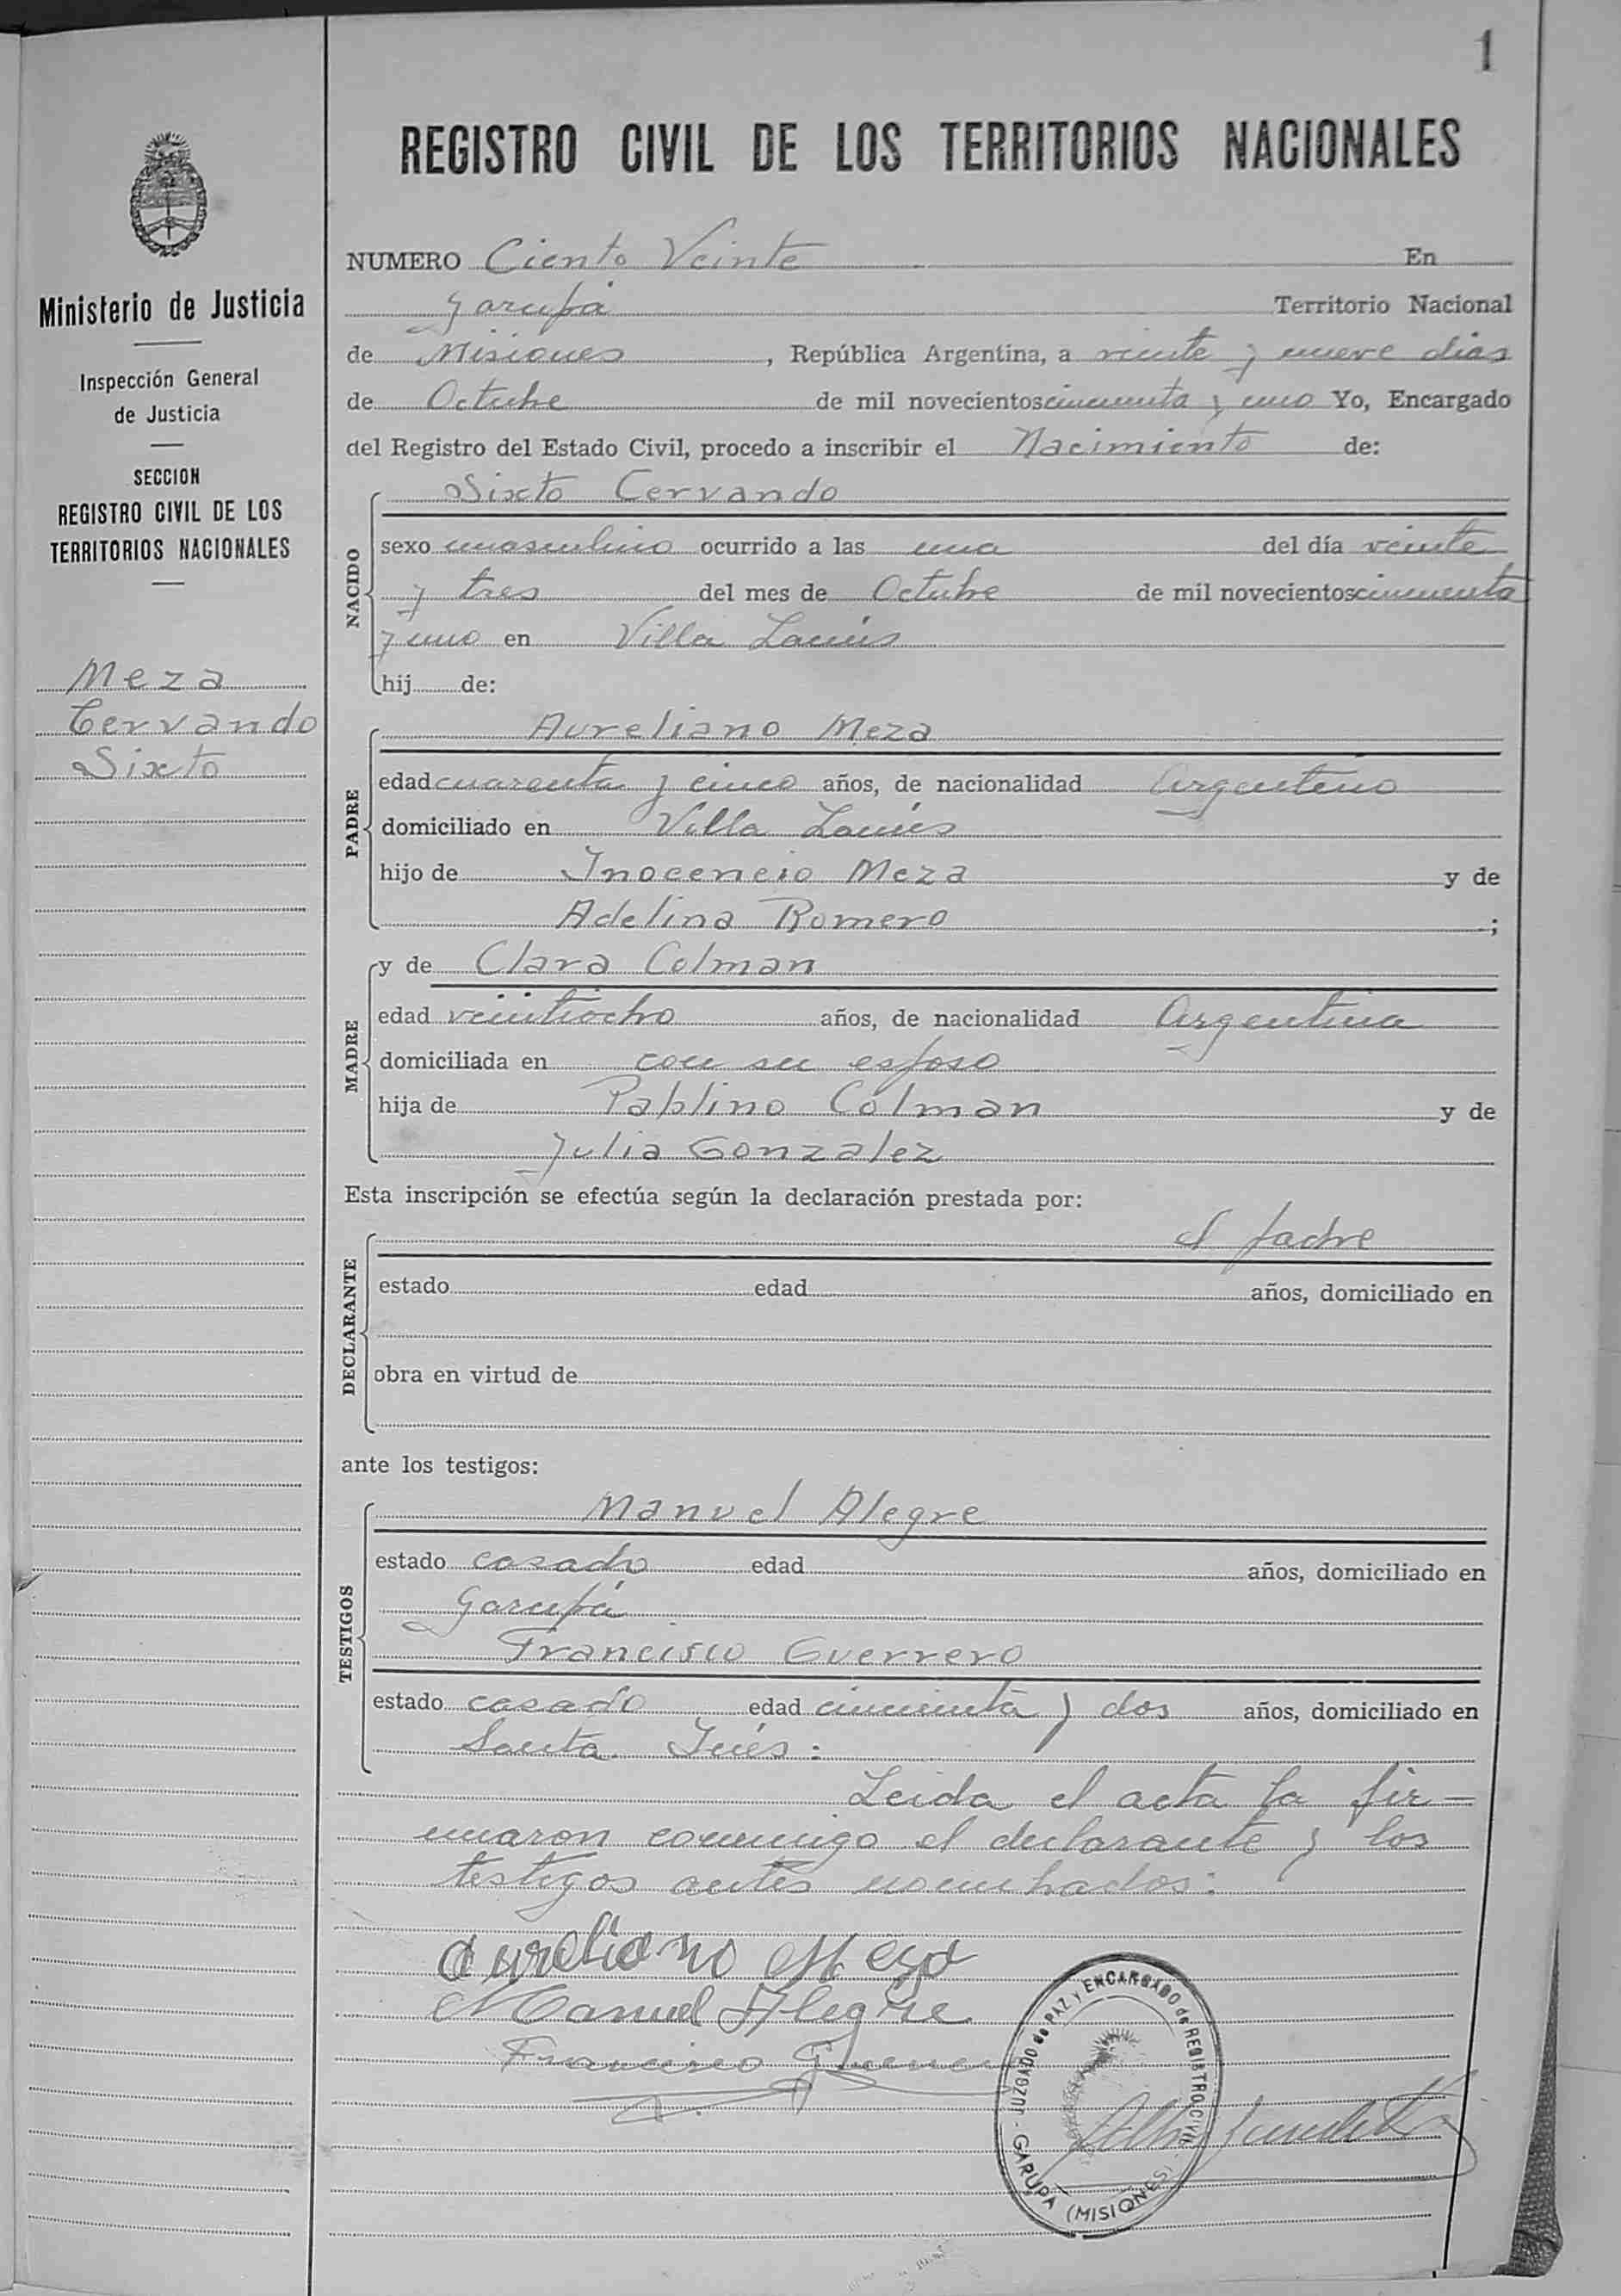 1
REGISTRO CIVIL DE LOS TERRITORIOS NACIONALES
Ministerio de Justicia
Inspección General
de Justicia
SECCION
REGISTRO CIVIL DE LOS
TERRITORIOS NACIONALES
Meza
Cervando
Sixto
NUMERO Ciento Veinte En
Garupá Territorio Nacional
de Misiones, República Argentina, a veinte y nueve dias
de Octubre de mil novecientos cincuenta y uno Yo, Encargado
del Registro del Estado Civil, procedo a inscribir el Nacimiento de:
NACIDO
Sixto Cervando
sexo masculino ocurrido a las una del día veinte
y tres del mes de Octubre de mil novecientos cincuenta
y uno en Villa Lanús
hij de:
PADRE
Aureliano Meza
edad cuarenta y cinco años, de nacionalidad Argentino
domiciliado en Villa Lanús
hijo de Inocencio Meza y de
Adelina Romero ;
MADRE
y de Clara Colman
edad veintiocho años, de nacionalidad Argentina
domiciliada en con su esposo
hija de Pablino Colman y de
Julia Gonzalez
Esta inscripción se efectúa según la declaración prestada por:
DECLARANTE
el padre
estado edad años, domiciliado en
obra en virtud de
ante los testigos:
TESTIGOS
Manuel Alegre
estado casado edad años, domiciliado en
Garupá
Francisco Guerrero
estado casado edad cincuenta y dos años, domiciliado en
Santa Inés:
Leida el acta la fir-
maron conmigo el declarante y los
testigos antes nombrados:
Aureliano Meza
Manuel Alegre
Francisco
JUZGADO de PAZ y ENCARGADO de REGISTRO CIVIL - GARUPA (MISIONES)